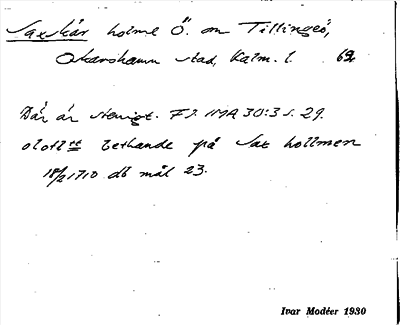 Saxskär holme Ö. om Tillingeö,
Oskarshamn stad, Kalm. l. 69
Där är stenigt. FJ. IMA 30:3 s. 29.
slott bethande på Sax hollmen
18/2 1710 db mål 23.
Ivar Modéer 1930